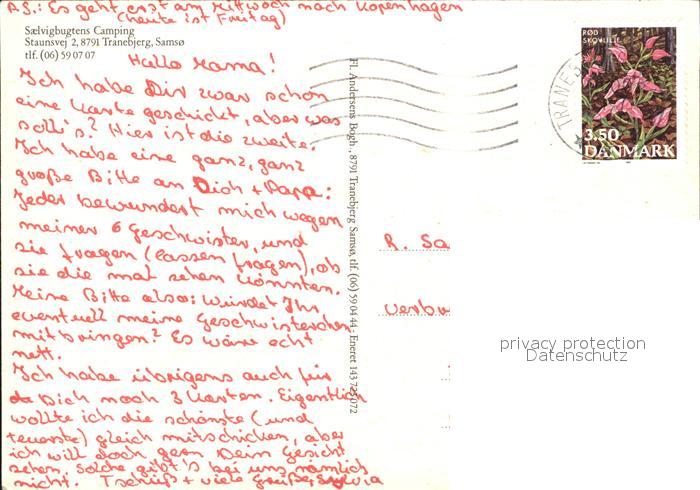 P.S.: Es geht erst am Mittwoch nach Kopenhagen
(heute ist Freitag)
Sælvigbugtens Camping
Staunsvej 2, 8791 Tranebjerg, Samsø
tlf. (06) 59 07 07
Hallo Mama!
Ich habe Dir zwar schon
eine Karte geschickt, aber was
solls? Hier ist die zweite.
Ich habe eine ganz, ganz
große Bitte an Dich + Papa:
Jeder bewundert mich wegen
meiner 6 Geschwister, und
sie fragen (lassen fragen), ob
sie die mal sehen könnten.
Meine Bitte also: Würdet Ihr
eventuell meine Geschwisterchen
mitbringen? Es wäre echt
nett.
Ich habe übrigens auch für
Dich noch 3 Karten. Eigentlich
wollte ich die schönste (und
teuerste) gleich mitschicken, aber
ich will doch gern Dein Gesicht
sehen. Solche gibt's bei uns nämlich
nicht. Tschüß + viele Grüße, Sylvia
Fl. Andersens Bogh., 8791 Tranebjerg Samsø, tlf. (06) 59 04 44 - Eneret 143 725 072
RØD
SKOVLILJE
3.50
DANMARK
TRANE
R. Sa
privacy protection
Datenschutz